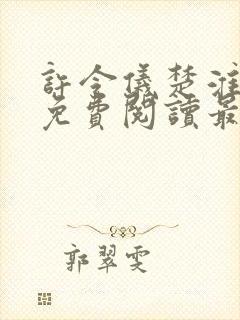 許令儀楚淮
免費閱讀最
郭翠雯